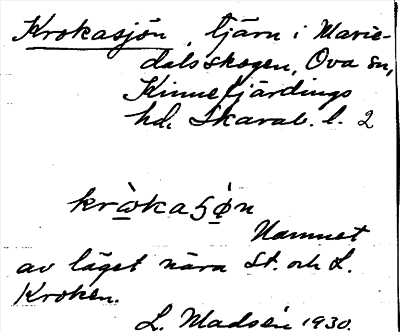 Krokasjön, tjärn i Marie-
dalsskogen, Ova sn,
Kinnefjärdings
hd, Skarab. l. 2
kròkaʃø̀n
Namnet
av läget nära St. och L.
Kroken.
L. Madsén 1930.